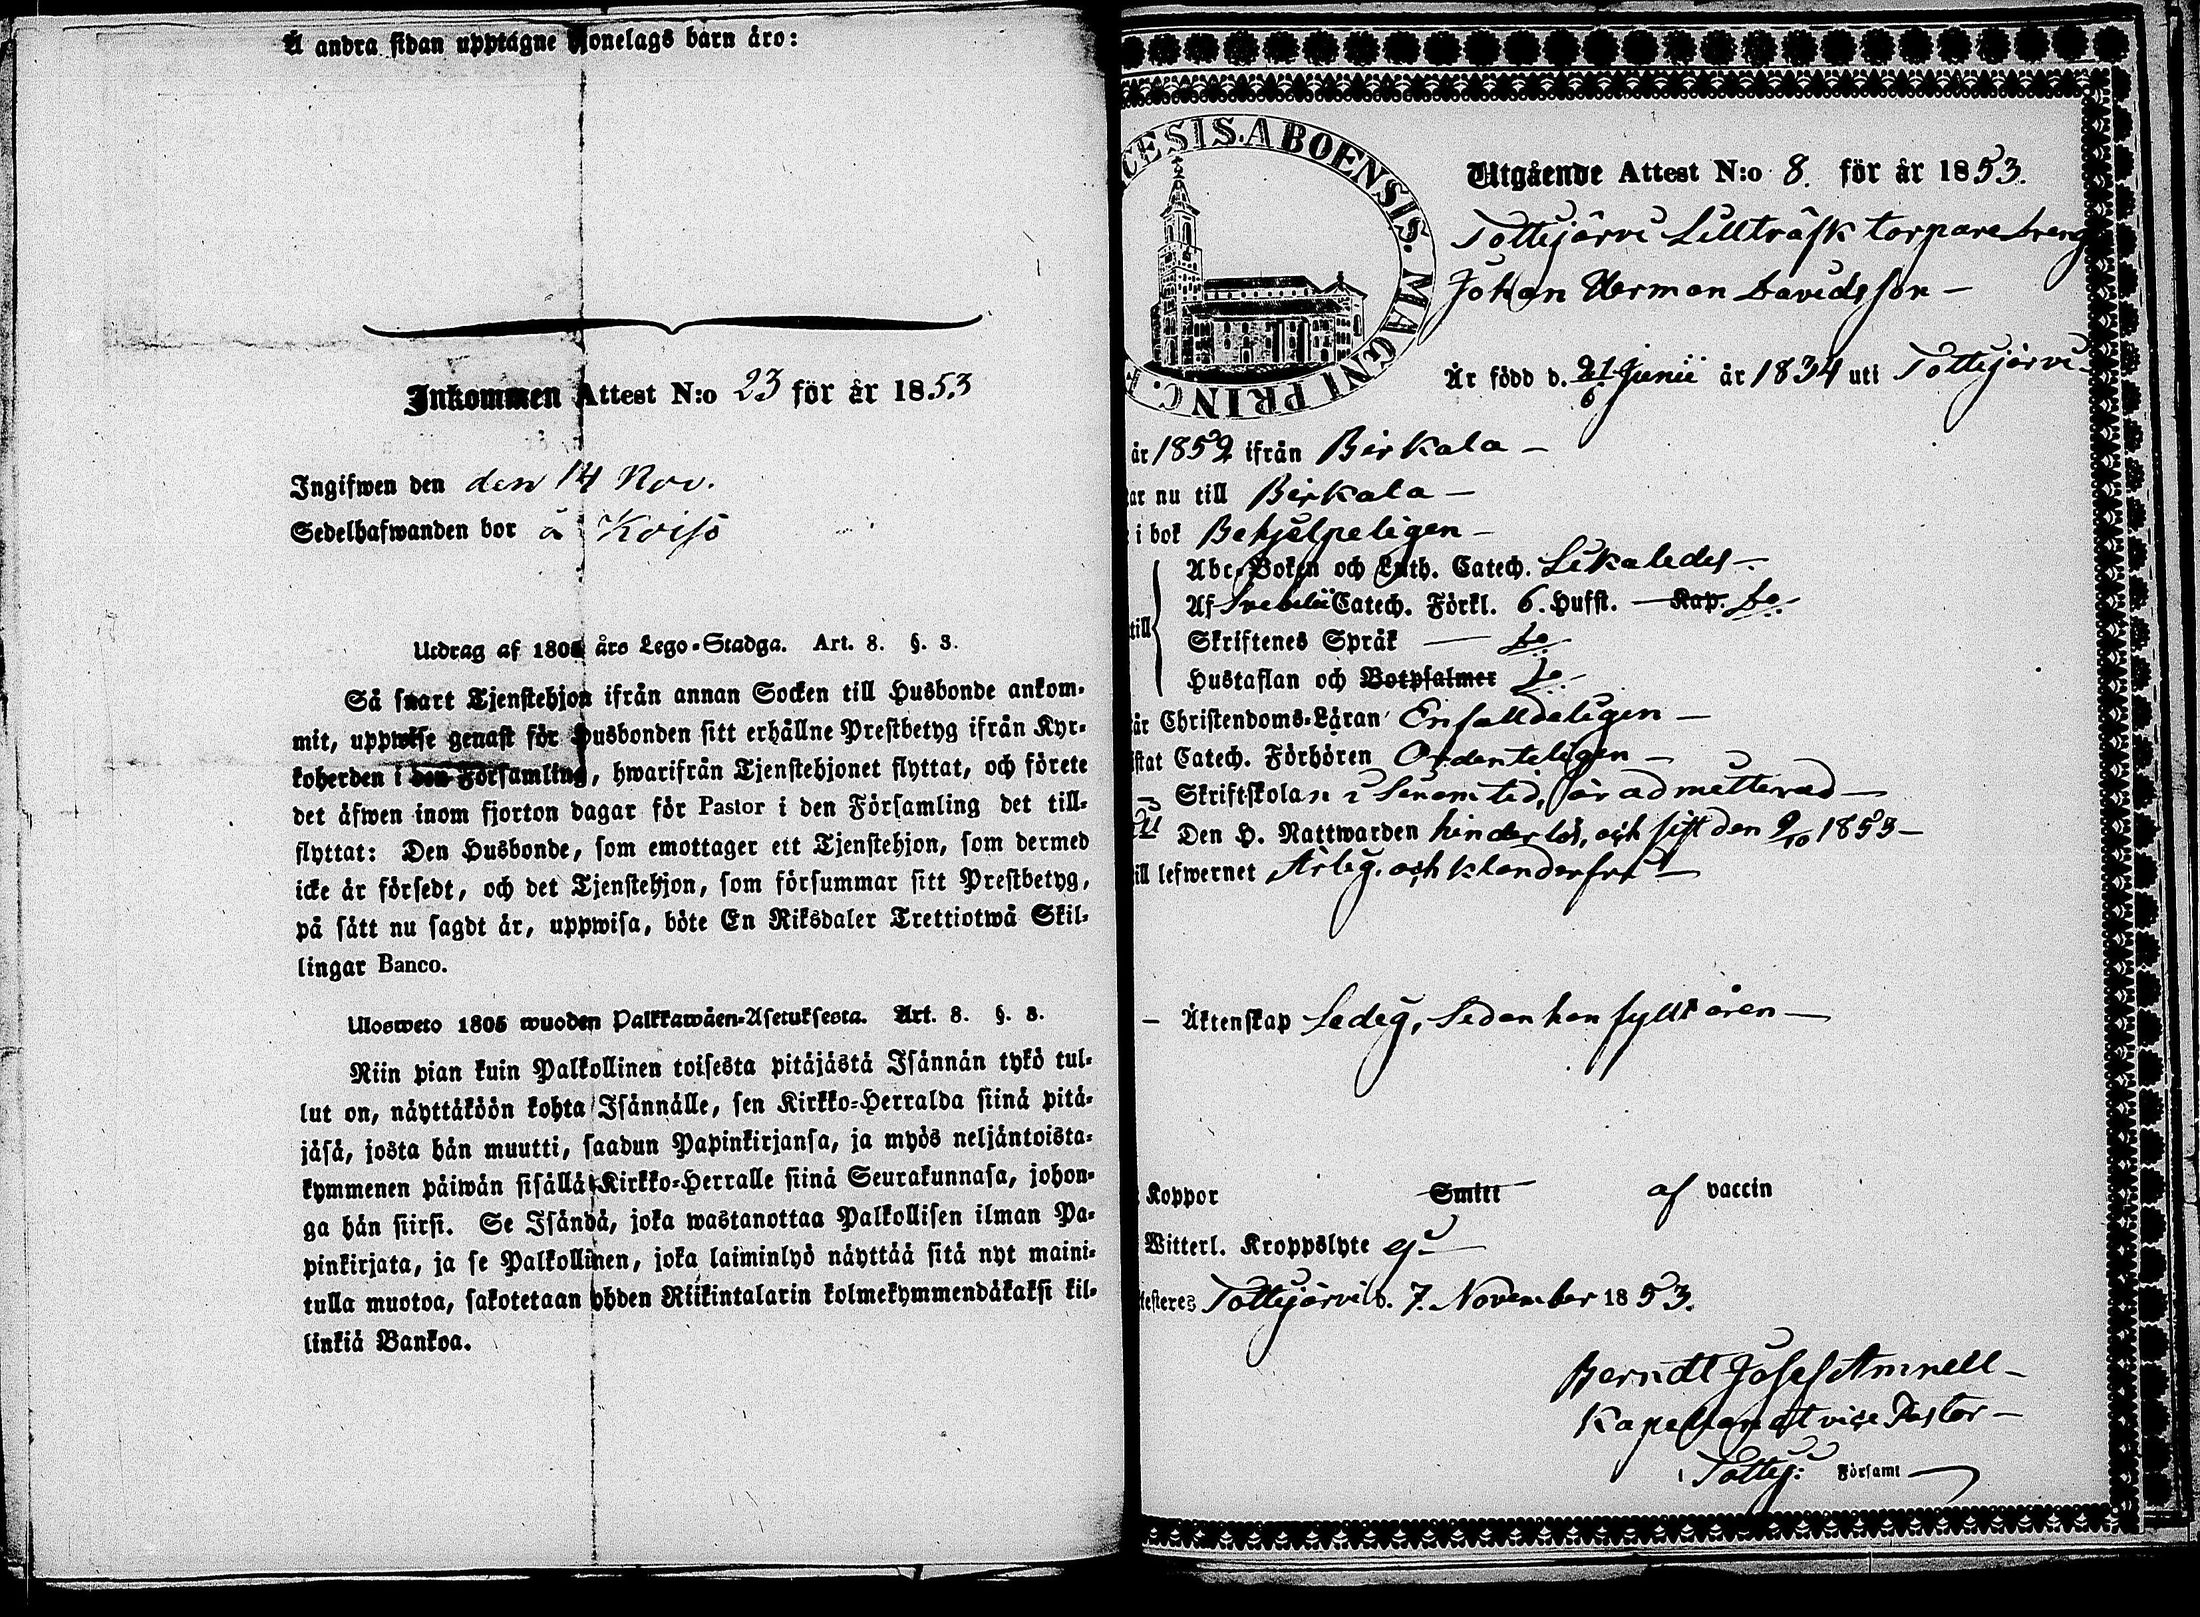 Å andra sidan upptagne Honelags barn äro:
Inkommen Attest N:o 23 för år 1853
Ingifwen den den 14 Nov.
Sedelhafwanden bor å Koiso
Utdrag af 1805 års Lego-Stadga. Art. 8. §. 3.
Så snart Tjenstehjon ifrån annan Socken till Husbonde ankom-
mit, uppwise genast för Husbonden sitt erhållne Prestbetyg ifrån Kyr-
koherden i den Församling, hwarifrån Tjenstehjonet flyttat, och förete
det äfwen inom fjorton dagar för Pastor i den Församling det till-
flyttat: Den Husbonde, som emottager ett Tjenstehjon, som dermed
icke är försedt, och det Tjenstehjon, som försummar sitt Prestbetyg,
på sätt nu sagdt är, uppwisa, böte En Riksdaler Trettiotwå Skil-
lingar Banco.
Ulosweto 1805 wuoden Palkkawäen-Asetuksesta. Art. 8. §. 3.
Niin pian kuin Palkollinen toisesta pitäjästä Isännän tykö tul-
lut on, näyttäköön kohta Isännälle, sen Kirkko-Herralda siinä pitä-
jäsä, josta hän muutti, saadun Papinkirjansa, ja myös neljäntoista-
kymmenen päiwän sisällä Kirkko-Herralle siinä Seurakunnasa, johon-
ga hän siirsi. Se Isändä, joka wastanottaa Palkollisen ilman Pa-
pinkirjata, ja se Palkollinen, joka laiminlyö näyttää sitä nyt maini-
tulla muotoa, sakotetaan yhden Riikintalarin kolmekymmendäkaksi kil-
linkiä Bankoa.
CESIS. ABOENSIS. MAGNI PRINC. F
Utgående Attest N:o 8. för år 1853.
Tottijärvi Lillträsk torpare dreng
Johan Herman Davidsson -
Är född d. 21/6 Junii år 1834 uti Tottijärvi -
år 1852 ifrån Birkala -
ar nu till Birkala -
i bok Behjelpeligen -
Abc-Boken och Luth. Catech. Likaledes -
Af Svebelii Catech. Förkl. 6. Hufst. - Kap. do -
till
Skriftenes Språk - do
Hustaflan och Botpsalmer do -
är Christendoms-Läran Enfalldeligen -
stat Catech. Förhören Ordenteligen -
- Skriftskolan i sinom tid, är admitterad -
Den H. Nattwarden hinderlös, och sist den 9/10 1853 -
ill lefwernet Ärlig och klanderfri -
- Äktenskap Ledig, sedan han fyllt åren -
Koppor Smitt af vaccin
Witterl. Kroppslyte ej -
testeres Tottijärvi d. 7. November 1853.
Berndt Josef Amnell -
Kapellan et vice Pastor -
i Tottij: Församl